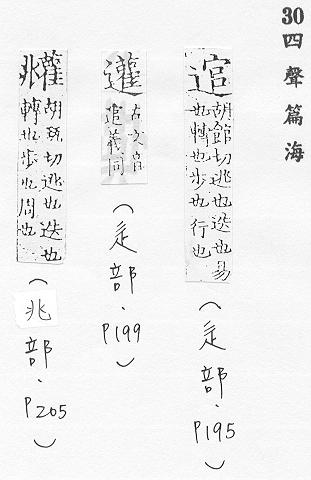 30四聲篇海
逭
胡館切逃也迭也易
也轉也步也行也
(辵部.P195)
古文
逭義同
(辵部.P199)
胡玩切逃也迭也
轉也步也周也
(兆部.P205)